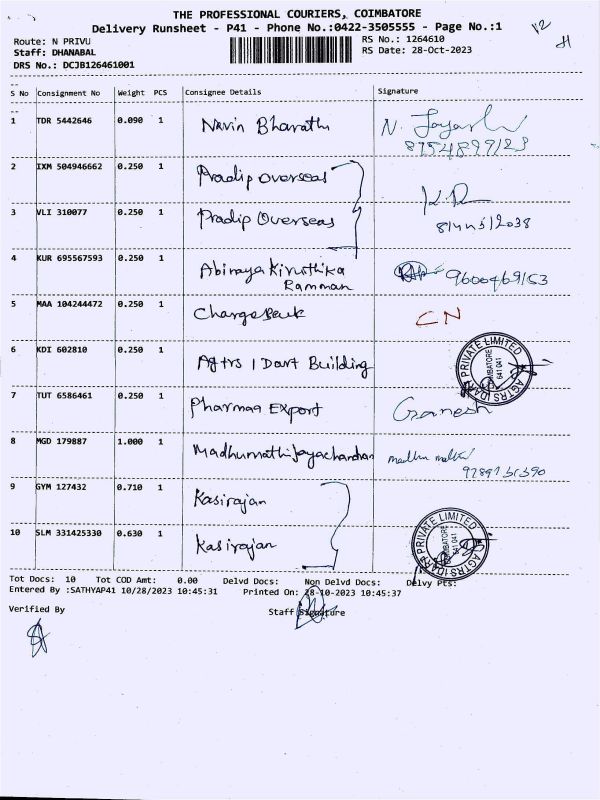 THE PROFESSIONAL COURIERS, COIMBATORE
Delivery Runsheet - P41 - Phone No.:0422-3505555 - Page No.:1
Route: N PRIVU RS No.: 1264610
Staff: DHANABAL RS Date: 28-Oct-2023
DRS No.: DCJB126461001
S No Consignment No Weight PCS Consignee Details Signature
1 TDR 5442646 0.090 1 Navin Bharathi N.
2 IXM 504946662 0.250 1 Pradip Overseas
3 VLI 310077 0.250 1 Pradip Overseas
4 KUR 695567593 0.250 1 Abinaya Kiruthika 9600469153
Ramman
5 MAA 104244472 0.250 1 ChargeBack CN
6 KDI 602810 0.250 1 Agtrs 1 Dart Building
PRIVATE LIMITED COIMBATORE 641 041 AGTRS IDART
7 TUT 6586461 0.250 1 Pharmaa Export Ganesh
8 MGD 179887 1.000 1 Madhumathi Jayachandran
9 GYM 127432 0.710 1 Kasirajan
10 SLM 331425330 0.630 1 Kasirajan
PRIVATE LIMITED COIMBATORE 641 041 AGTRS IDART
Tot Docs: 10 Tot COD Amt: 0.00 Delvd Docs: Non Delvd Docs: Delvy Pts:
Entered By :SATHYAP41 10/28/2023 10:45:31 Printed On: 28-10-2023 10:45:37
Verified By Staff Signature